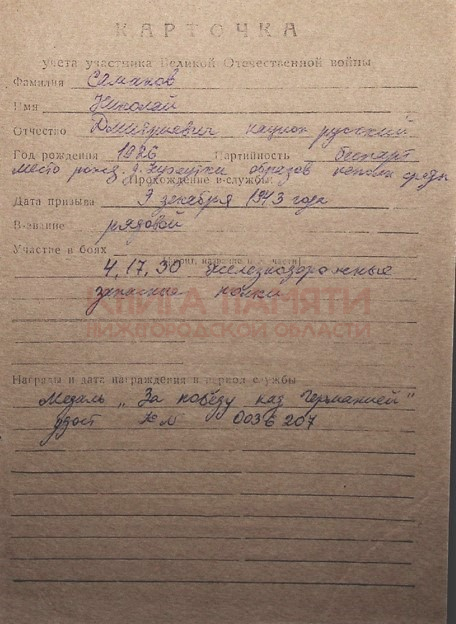 КАРТОЧКА
учета участника Великой Отечественной войны
Фамилия Семенов
Имя Николай
Отчество Дмитриевич национ русский
Год рождения 1926 Партийность беспарт
Место рожд. д. образов неполн средн
Прохождение службы:
Дата призыва 9 декабря 1943 года
В-звание рядовой
Участие в боях
4, 17, 30 железнодорожные
запасные полки
КНИГА ПАМЯТИ
НИЖЕГОРОДСКОЙ ОБЛАСТИ
Награды и дата награждения в период службы
Медаль „За победу над Германией"
удост № 0036207